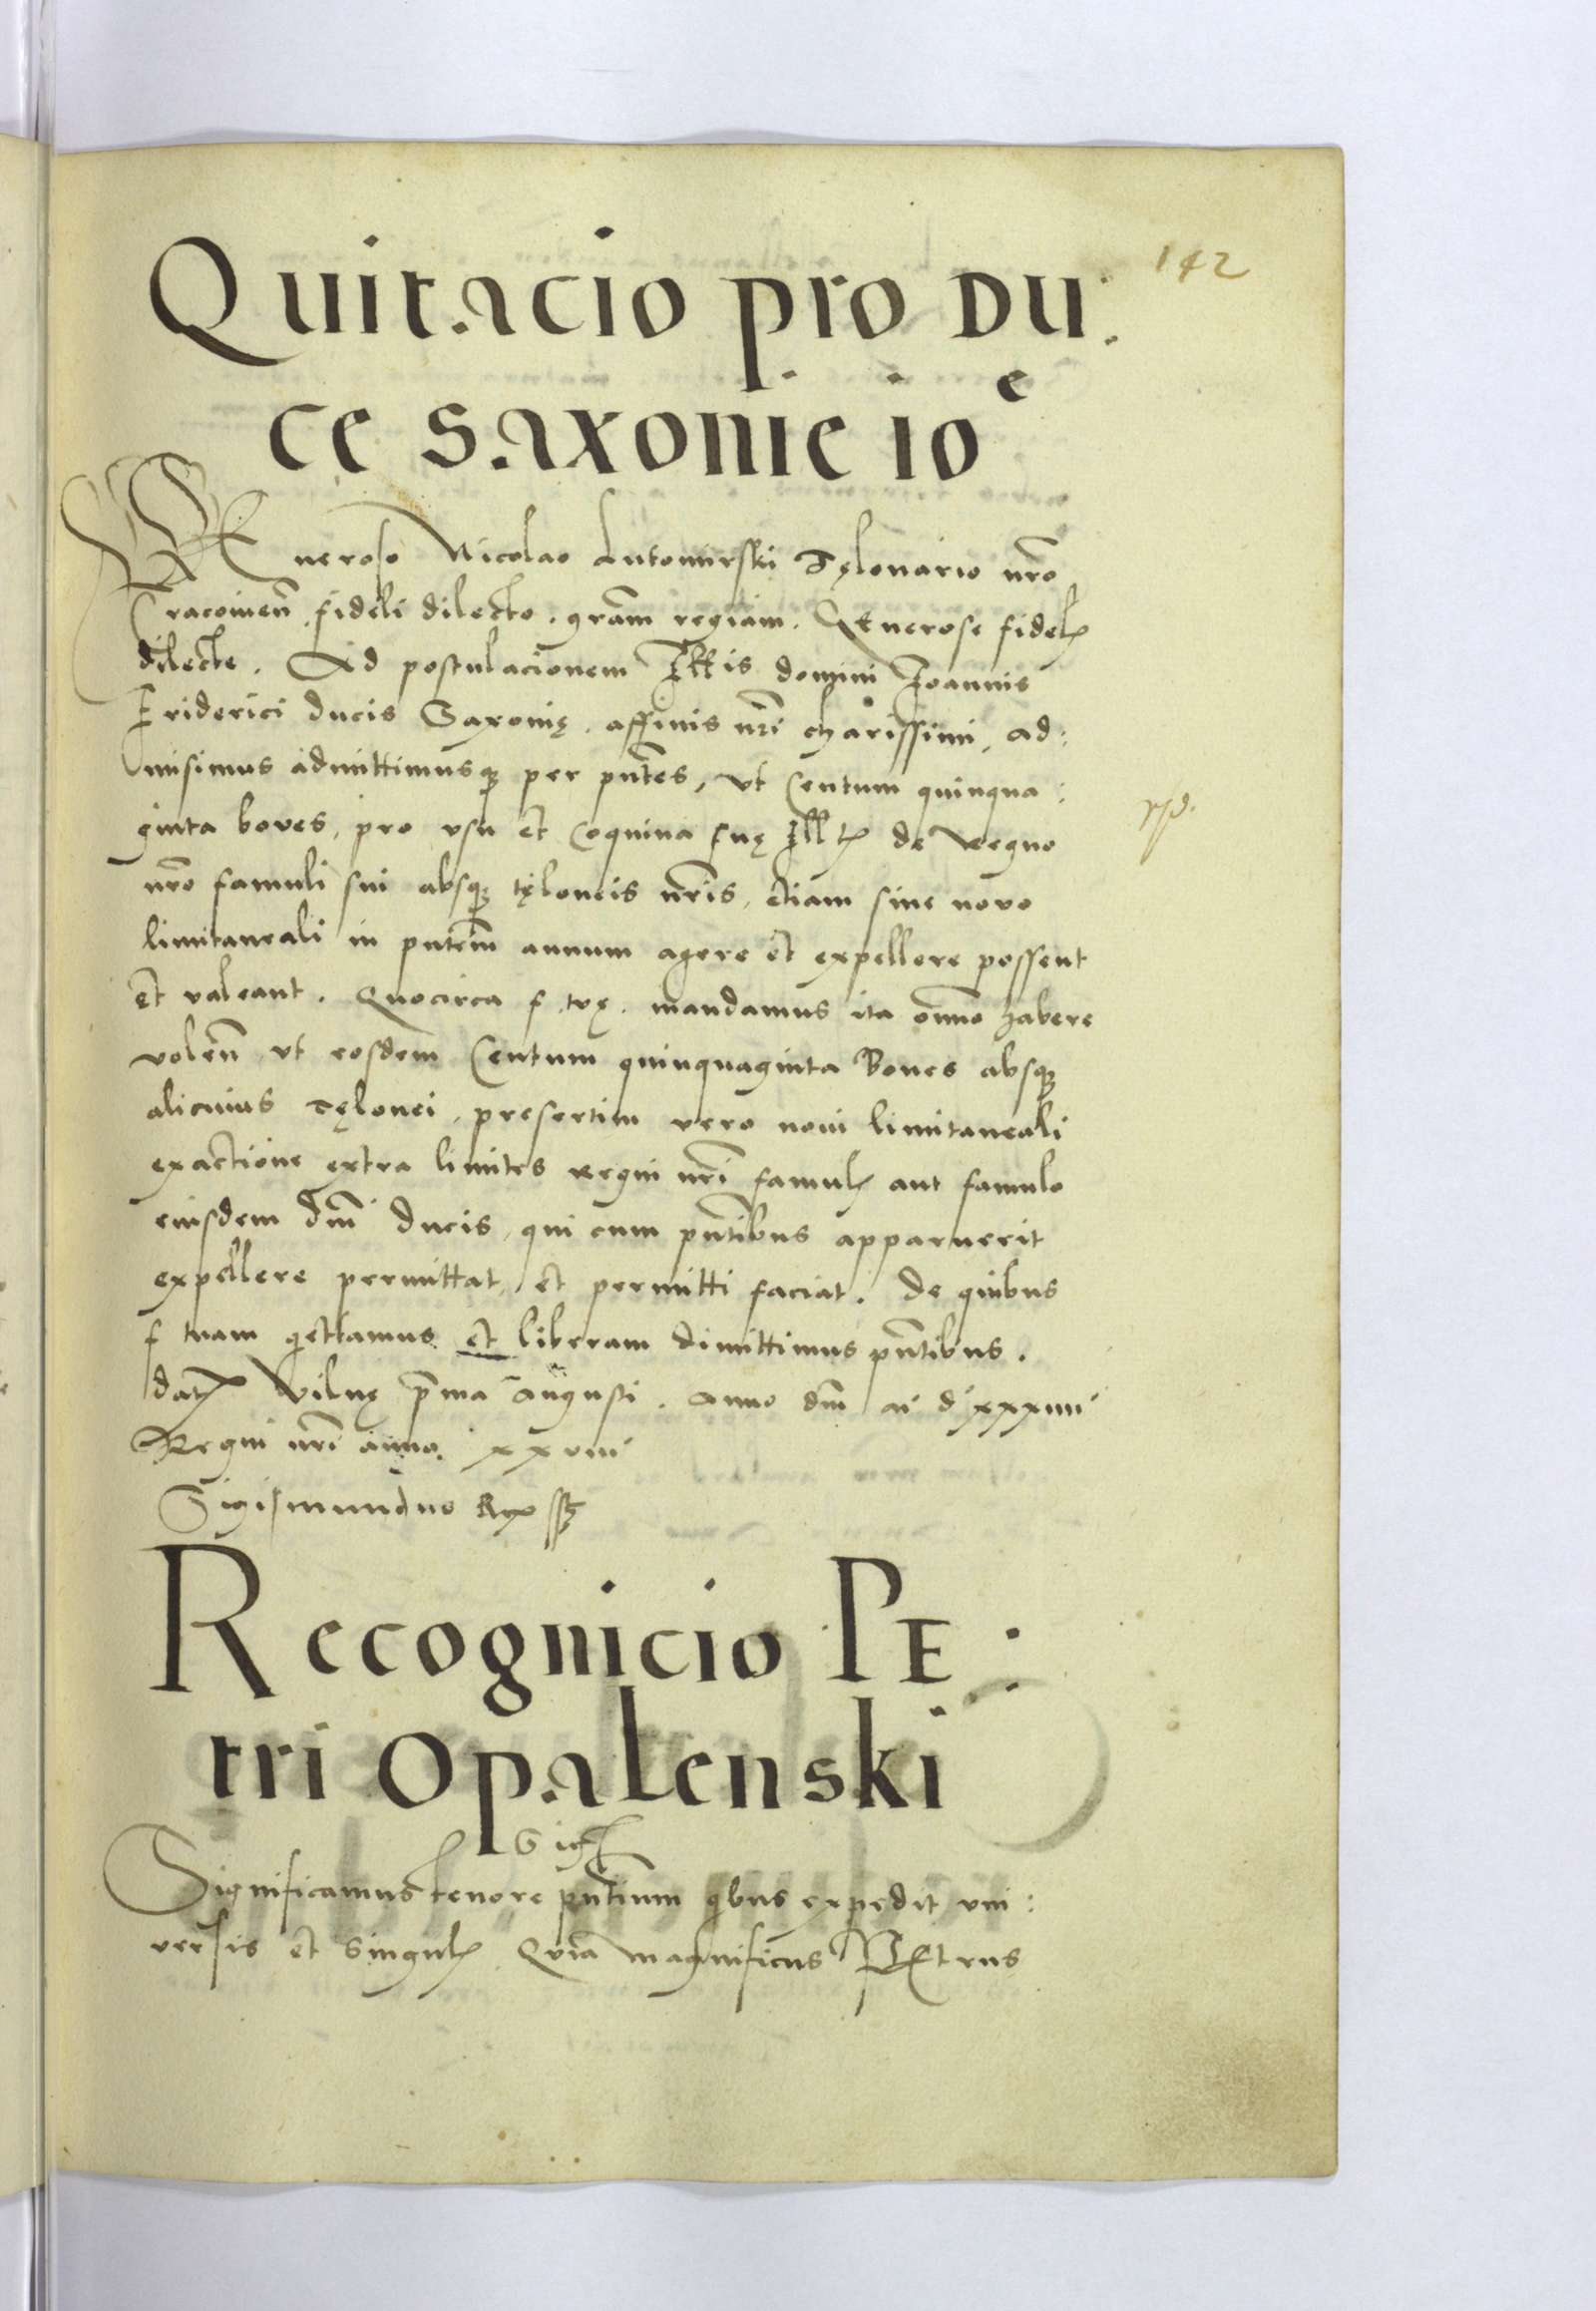 142
Quitacio pro du.
ce saxonie ioᵉ
GEneroso Nicolao Lutomirski Tęlonario nr̃o
Cracouien̄ . fideli dilecto . gr̄am regiam . GEnerose fidelꝭ
dilecte . Ad postulacionem Illis domini Ioannis
Friderici ducis Saxonię . affinis nr̃i charissimi , ad:
misimus admittimusqꝫ per pn̄tes , vt Centum quinqua:
ginta boves , pro vsu et Coquina suę Illtꝭ de Regno
nr̃o famuli sui absqꝫ tęloneis nr̃is , etiam sine novo
limitaneali in pn̄tem̄ annum agere et expellere possent
et valeant . Quocirca f . tvę . mandamus ita om̄no habere
volen̄ vt eosdem Centum quinquaginta Boues absqꝫ
alicuius tęlonei , presertim vero noui limitaneali
exactione extra limites regni nr̃i famulꝭ aut famulo
eiusdem dn̄i ducis , qui cum pn̄tibus apparuerit
expellere permittat , et permitti faciat . de quibus
f tuam q̄ettamus et liberam dimittimus pn̄tibus .
datꝭ Vilnę pr̄ma Augusti . Anno dn̄i M DXXXIIII
Regni nr̃i anno . XXVIII
Sigismundus Rex ssꝫ
Recognicio Pe:
tri Opalenski
Sigꝭ
Significamus tenore pn̄tium qͥbus expedit vni:
versis et singulꝭ . Quia magnificus PEtrus